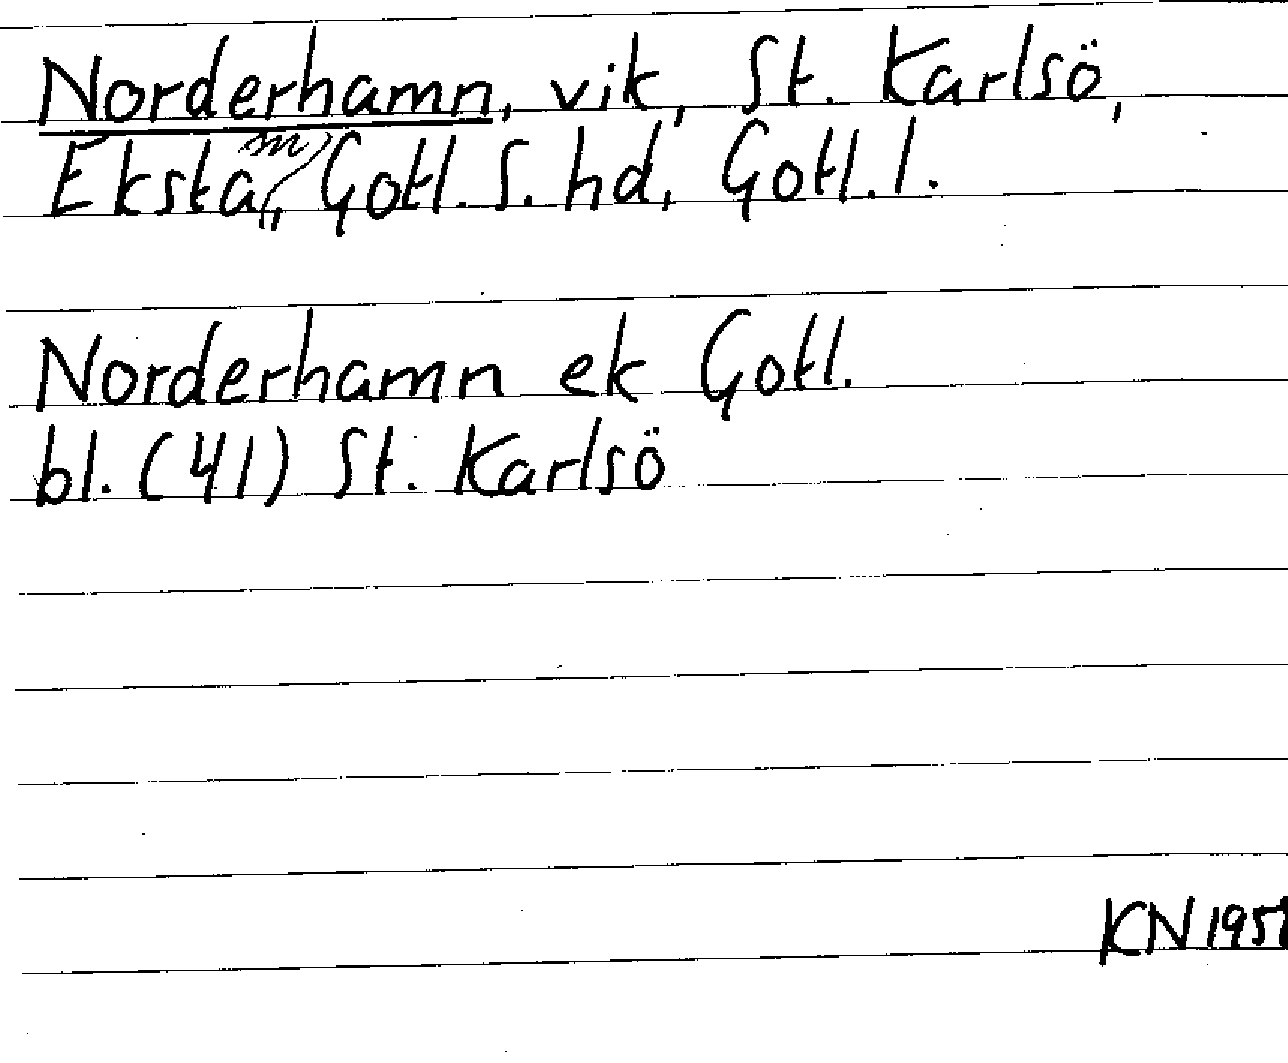 Norderhamn, vik, St. Karlsö,
Eksta sn, Gotl. S. hd, Gotl. l.
Norderhamn ek Gotl.
bl. (41) St. Karlsö
KN